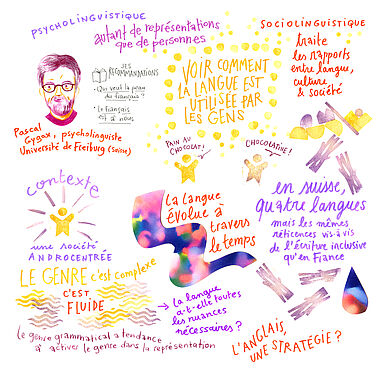 PSYCHOLINGUISTIQUE
autant de représentations
que de personnes
SES
RECOMMANDATIONS
• Qui veut la peau
du français ?
• Le français
est à nous
Pascal
Gygax, psycholinguiste
Université de Freiburg (Suisse)
VOIR COMMENT
LA LANGUE EST
UTILISÉE PAR
LES GENS
PAIN AU
CHOCOLAT !
CHOCOLATINE !
SOCIOLINGUISTIQUE
traite
les rapports
entre langue,
culture
& société
contexte
une société
ANDROCENTRÉE
LE GENRE c'est complexe
C'EST
FLUIDE
le genre grammatical a tendance
à activer le genre dans la représentation
La langue
évolue à
travers
le temps
→ la langue
a-t-elle toutes
les nuances
nécessaires ?
en suisse,
quatre langues
mais les mêmes
réticences vis-à-vis
de l'écriture inclusive
qu'en France
L'ANGLAIS,
UNE STRATÉGIE ?